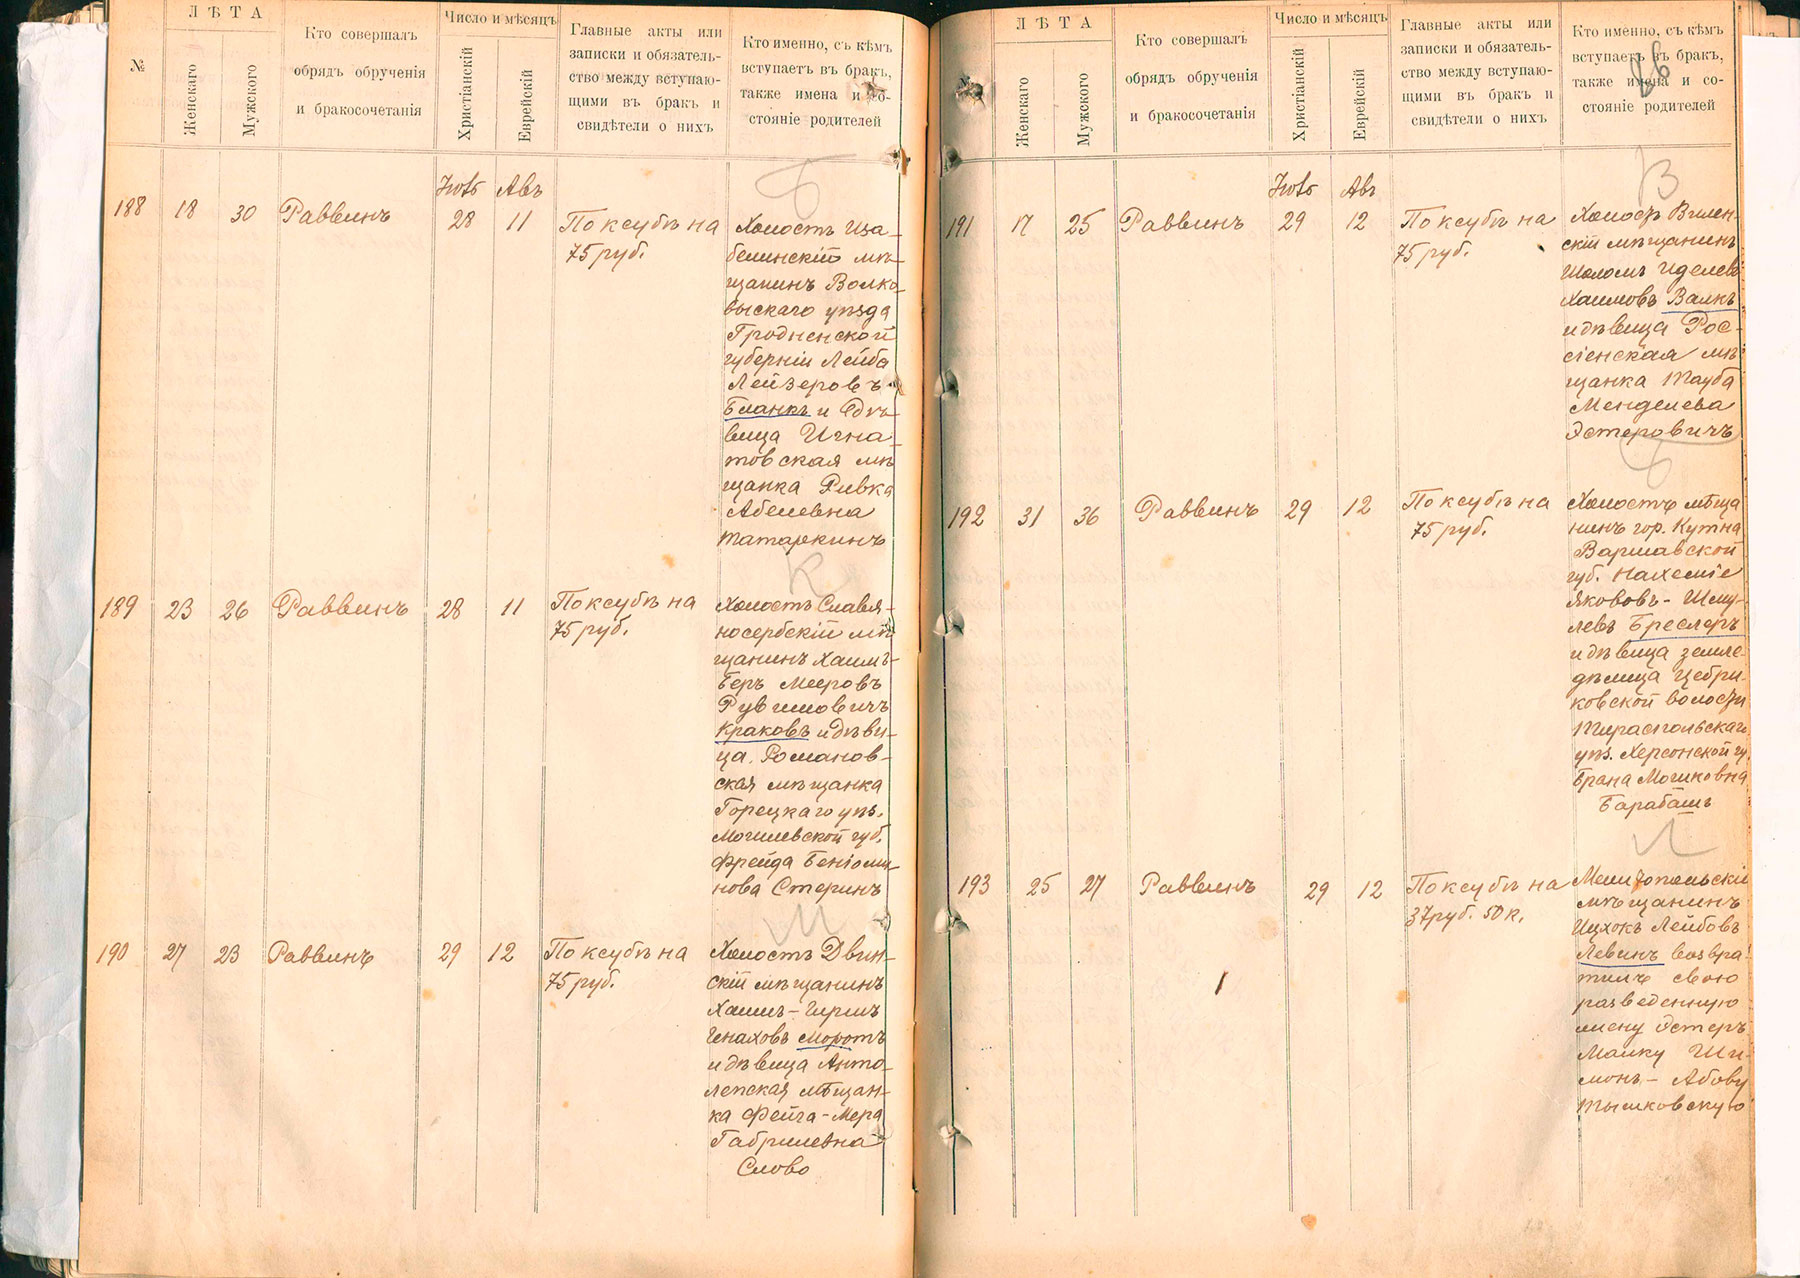 №
ЛѢТА
Женскаго
Мужского
Кто совершалъ
обрядъ обрученія
и бракосочетанія
Число и мѣсяцъ
Христіанскій
Еврейскій
Главные акты или
записки и обязатель-
ство между вступаю-
щими въ бракъ и
свидѣтели о нихъ
Кто именно, съ кѣмъ
вступаетъ въ бракъ,
также имена и со-
стояніе родителей
Б
188 18 30 Раввинъ
Іюль 28
Авъ 11
По ксубѣ на
75 руб.
Холостъ Иза-
белинскій мѣ-
щанинъ Волко-
выскаго уѣзда
Гродненской
губерніи Лейба
Лейзеровъ
Бланкъ и дѣ-
вица Игна-
товская мѣ-
щанка Ривка
Абелевна
Татаркинъ
К
189 23 26 Раввинъ 28 11
По ксубѣ на
75 руб.
Холостъ Славя-
носербскій мѣ-
щанинъ Хаимъ-
Беръ Мееровъ
Рувимовичъ
Краковъ и дѣви-
ца Романов-
ская мѣщанка
Горецкаго уѣз.
Могилевской губ.
Фрейда Беніоми-
нова Стеринъ
М
190 27 23 Раввинъ 29 12
По ксубѣ на
75 руб.
Холостъ Двин-
скій мѣщанинъ
Хаимъ-Гиршъ
Генаховъ Моротъ
и дѣвица Анто-
лепская мѣщан-
ка Фейга-Мера
Габрилевна
Слово
ЛѢТА
Женскаго
Мужского
Кто совершалъ
обрядъ обрученія
и бракосочетанія
Число и мѣсяцъ
Христіанскій
Еврейскій
Главные акты или
записки и обязатель-
ство между вступаю-
щими въ бракъ и
свидѣтели о нихъ
Кто именно, съ кѣмъ
вступаетъ въ бракъ,
также имена и со-
стояніе родителей
В
191 17 25 Раввинъ
Іюль 29
Авъ 12
По ксубѣ на
75 руб.
Холостъ Вилен-
скій мѣщанинъ
Шоломъ Иделевъ
Хаимовъ Валкъ
и дѣвица Рос-
сіенская мѣ-
щанка Тауба
Менделева
Эстеровичъ
Б
192 31 36 Раввинъ 29 12
По ксубѣ на
75 руб.
Холостъ мѣща
нинъ гор. Кутна
Варшавской
губ. Нахеміе
Яковъ-Шму-
левъ Бреслеръ
и дѣвица земле-
дѣлица Цебри-
ковской волости
Тираспольскаго
уѣз. Херсонской гу.
Брана Мошковна
Барабашъ
Л
193 25 27 Раввинъ 29 12
По ксубѣ на
37 руб. 50 к.
Мелитопольскій
мѣщанинъ
Ицхокъ Лейбовъ
Левинъ возвра-
тилъ свою
разведенную
жену Эстеръ
Малку Ши-
монъ-Абову
Тышковскую